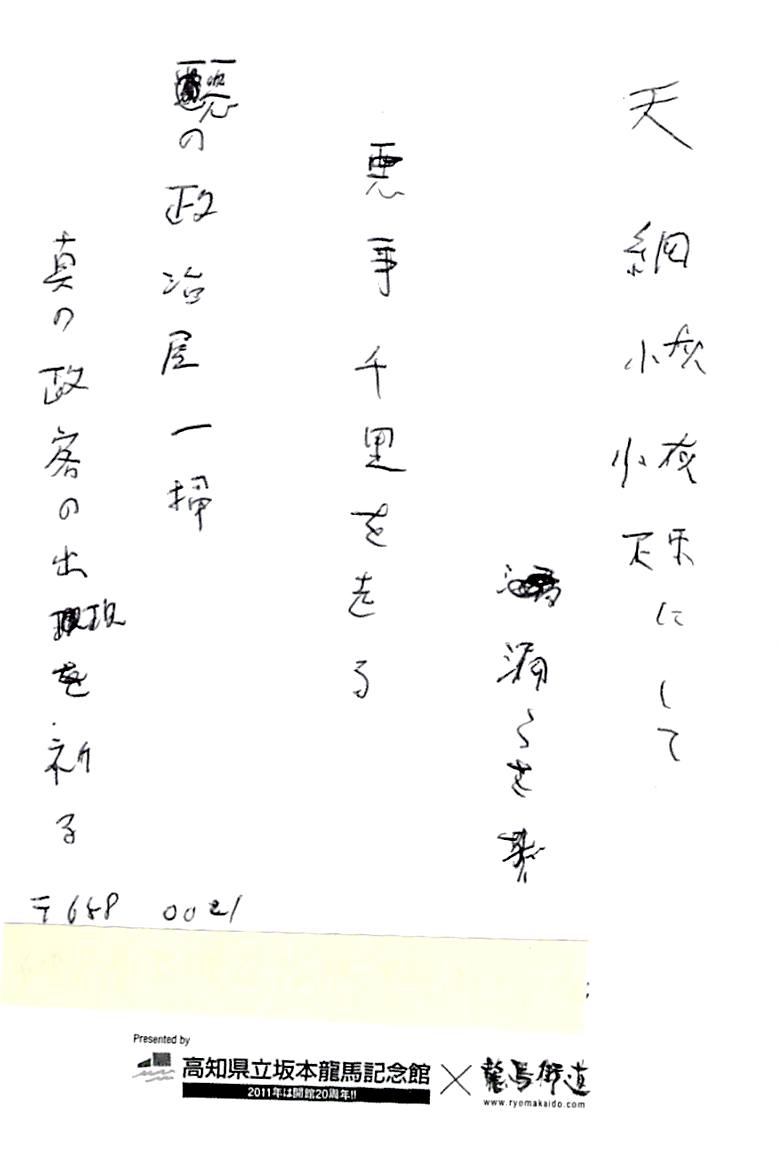 天網恢恢疎にして
漏らさず
悪事千里を走る
悪の政治屋一掃
真の政客の出現を祈る
〒688 0021
Presented by
高知県立坂本龍馬記念館 × 龍馬街道
2011年は開館20周年!!
www.ryomakaido.com